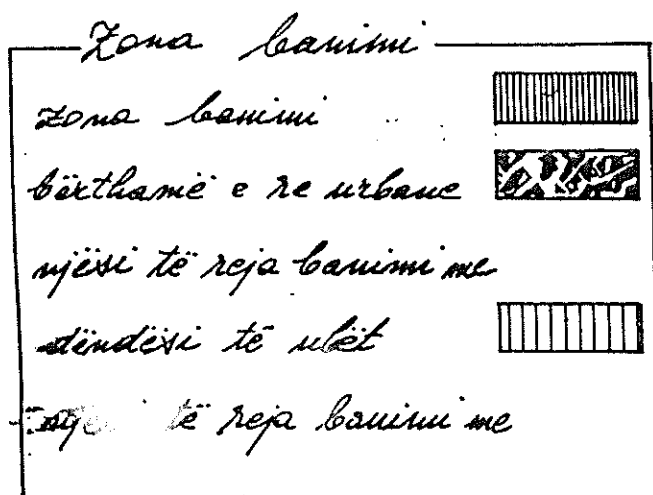 Zona banimi
zona banimi
bërthamë e re urbane
njësi të reja banimi me
dëndësi të ulët
të reja banimi me